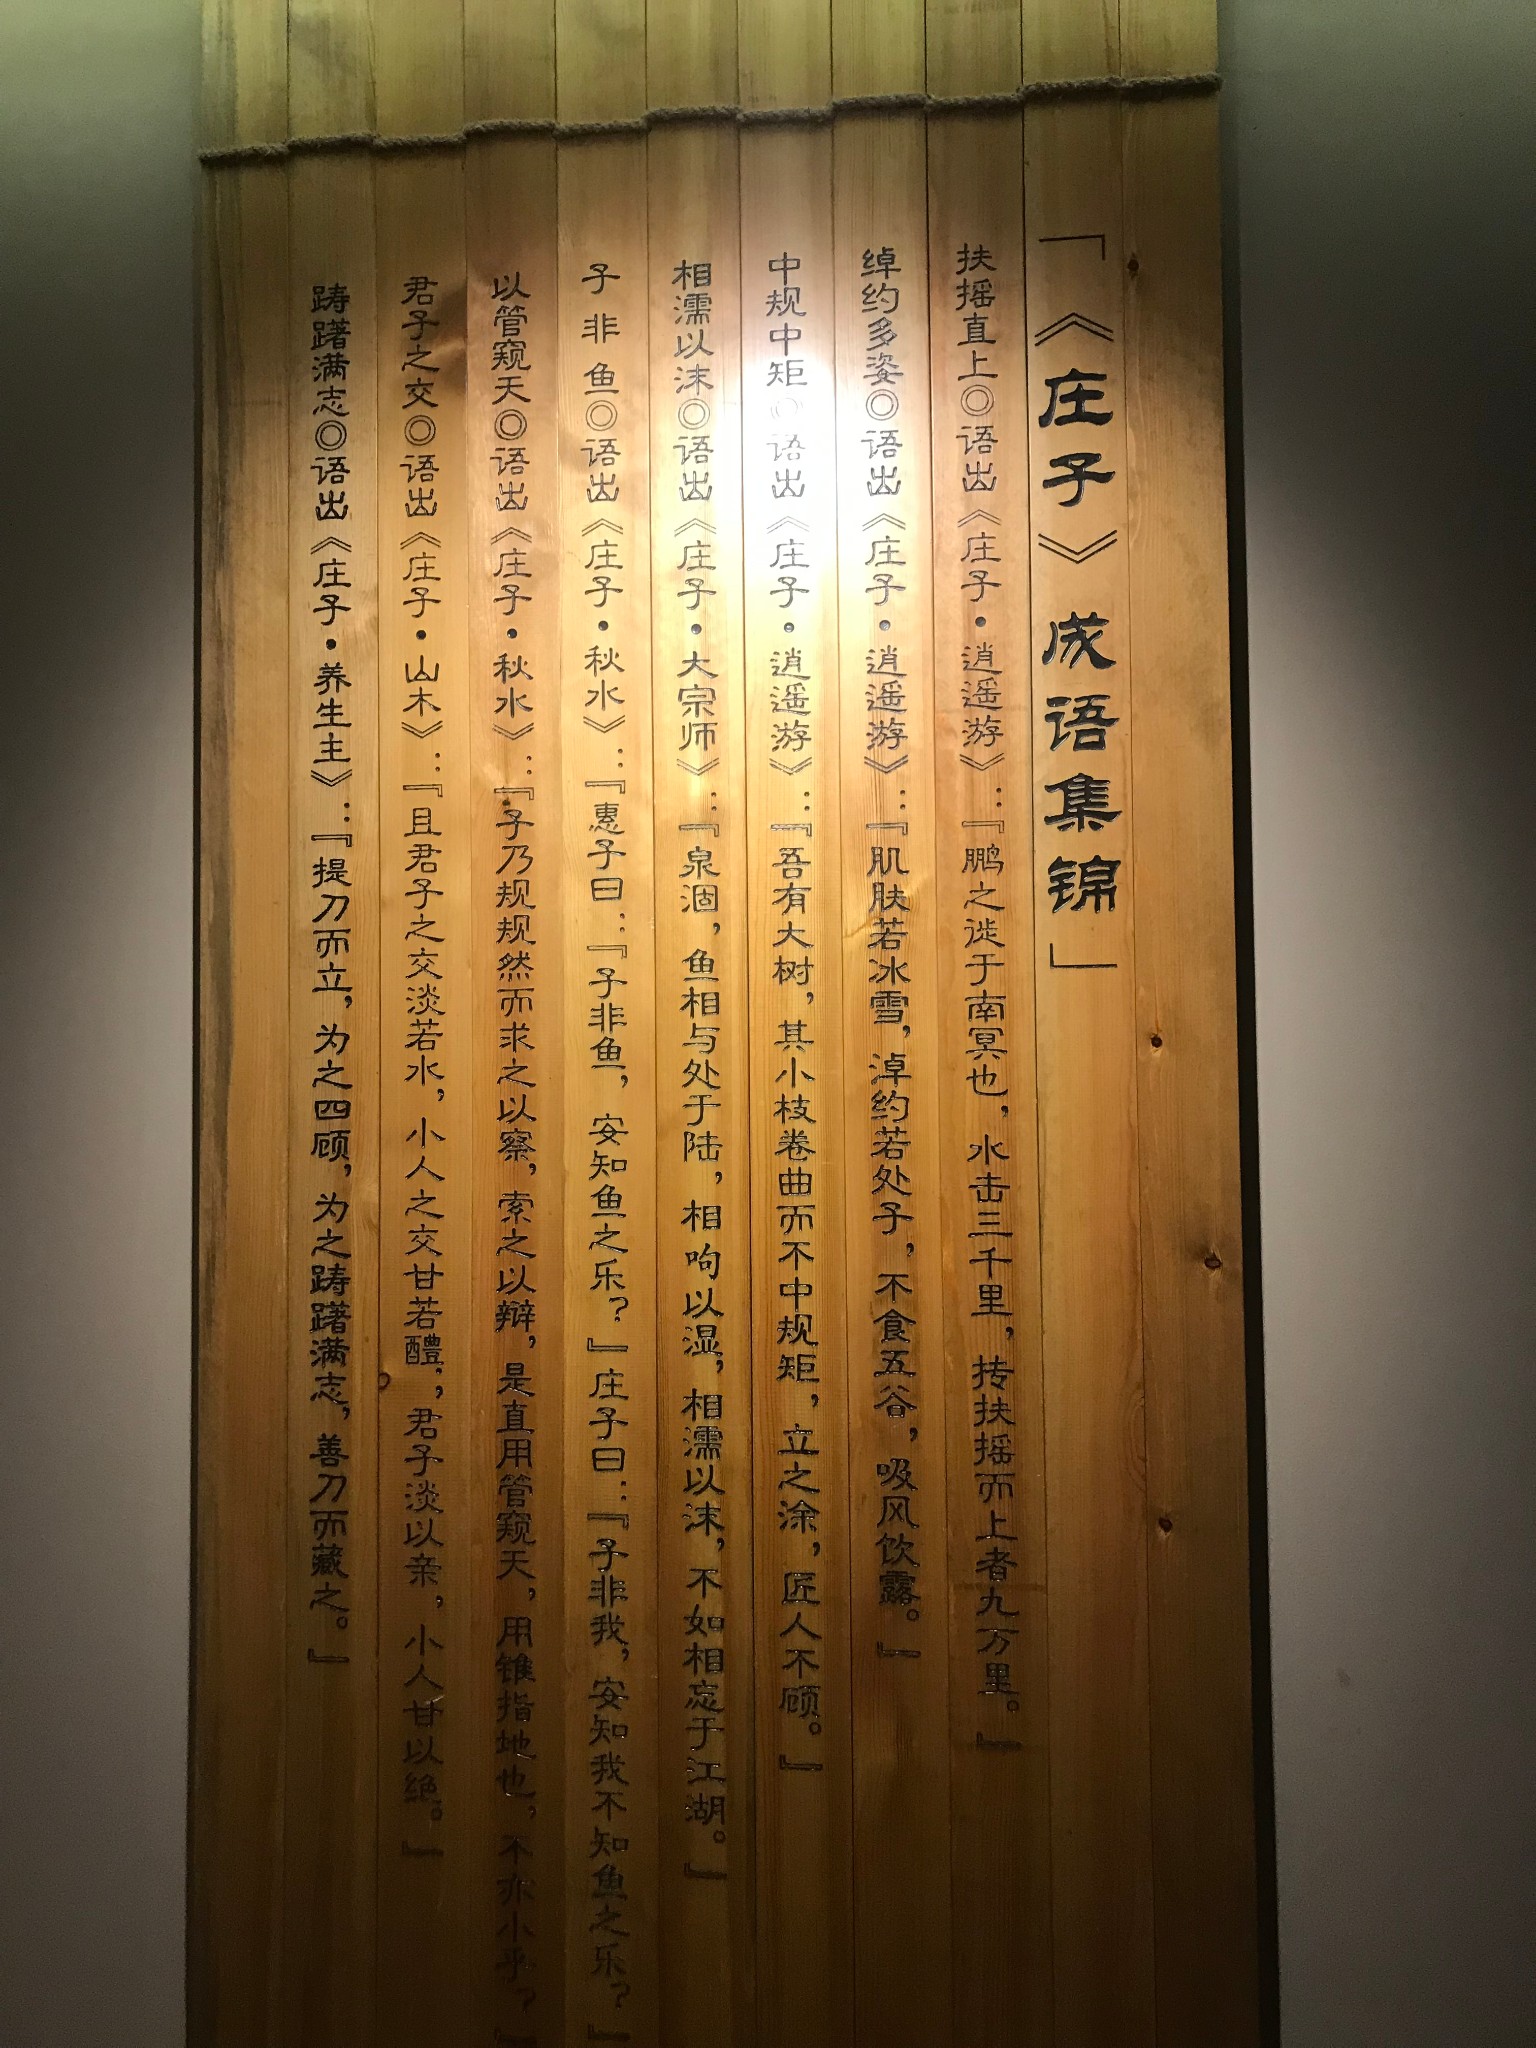 「《庄子》成语集锦」
扶摇直上◎语出《庄子·逍遥游》：『鹏之徙于南冥也，水击三千里，抟扶摇而上者九万里。』
绰约多姿◎语出《庄子·逍遥游》：『肌肤若冰雪，淖约若处子，不食五谷，吸风饮露。』
中规中矩◎语出《庄子·逍遥游》：『吾有大树，其小枝卷曲而不中规矩，立之涂，匠人不顾。』
相濡以沫◎语出《庄子·大宗师》：『泉涸，鱼相与处于陆，相呴以湿，相濡以沫，不如相忘于江湖。』
子非鱼◎语出《庄子·秋水》：『惠子曰：『子非鱼，安知鱼之乐？』庄子曰：『子非我，安知我不知鱼之乐？』
以管窥天◎语出《庄子·秋水》：『子乃规规然而求之以察，索之以辩，是直用管窥天，用锥指地也，不亦小乎？』
君子之交◎语出《庄子·山木》：『且君子之交淡若水，小人之交甘若醴；君子淡以亲，小人甘以绝。』
踌躇满志◎语出《庄子·养生主》：『提刀而立，为之四顾，为之踌躇满志，善刀而藏之。』